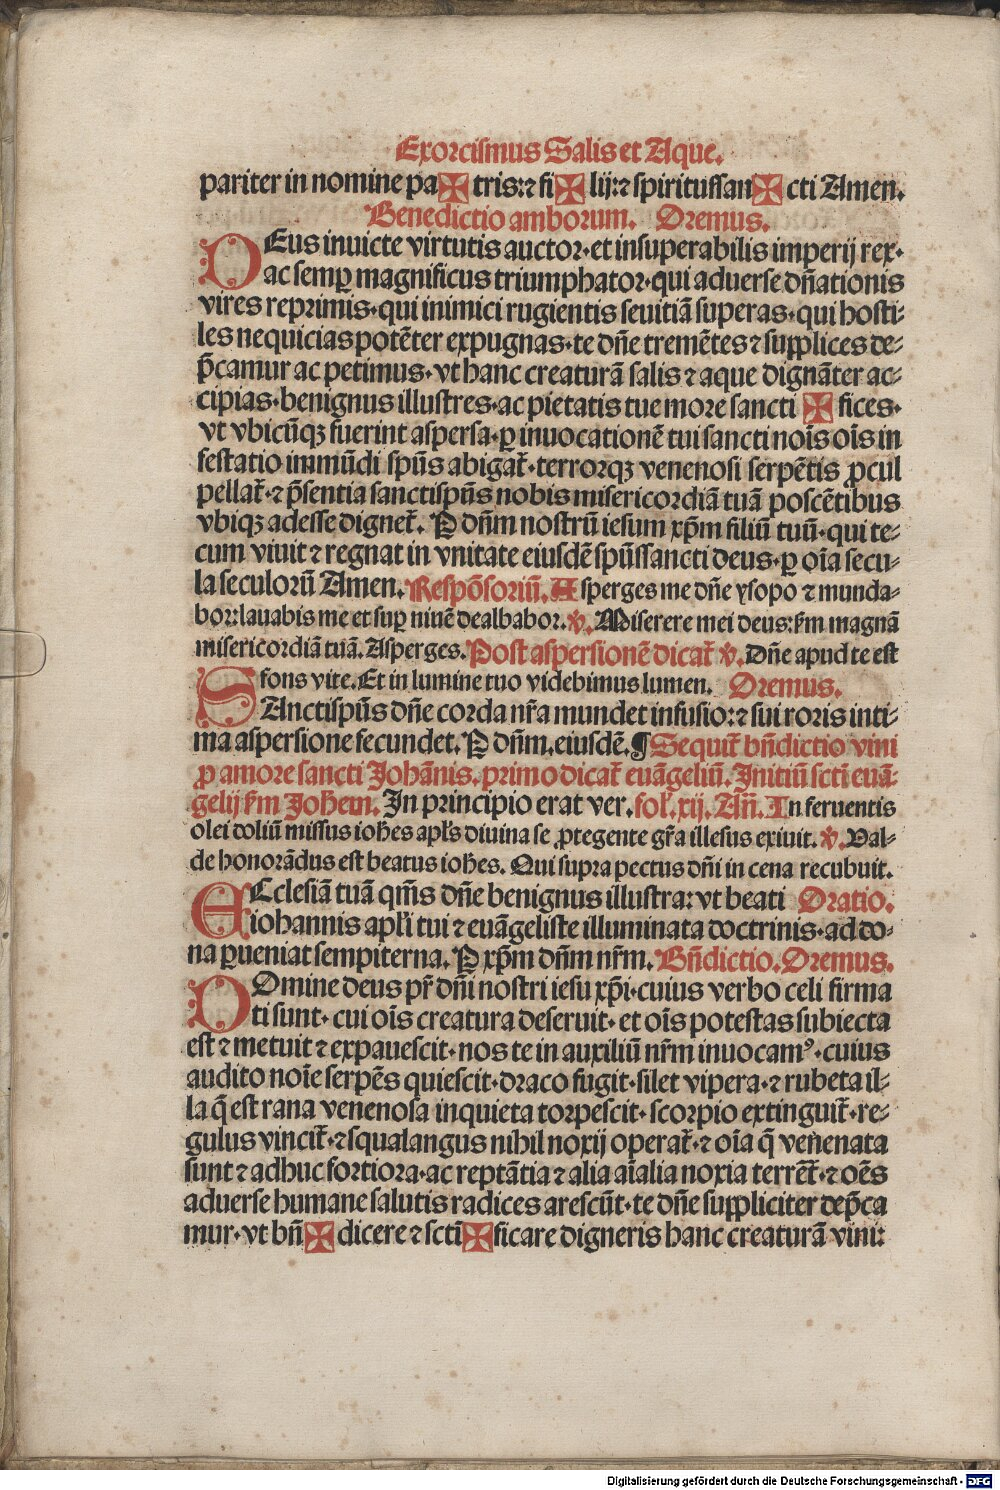 Exorcismus Salis et Aque.
pariter in nomine pa✠tris:⁊ fi✠lij:⁊ spiritussan✠cti Amen.
Benedictio amborum. Oremus.
DEus inuicte virtutis auctor·et insuperabilis imperij rex·
ac semꝑ magnificus triumphator·qui aduerse dn̄ationis
vires reprimis·qui inimici rugientis seuitiā superas·qui hosti-
les nequicias potēter expugnas·te dn̄e tremētes ⁊ supplices de-
p̄camur ac petimus·vt hanc creaturā salis ⁊ aque dignāter ac-
cipias·benignus illustres·ac pietatis tue more sancti ✠ fices·
vt vbicūqꝫ fuerint aspersa·ꝑ inuocationē tui sancti noīs oīs in
festatio immūdi spūs abigat̄·terrorqꝫ venenosi serpētis ꝓcul
pellat̄·⁊ p̄sentia sanctispūs nobis misericordiā tuā poscētibus
vbiqꝫ adesse dignet̄. P dn̄m nostrū iesum xp̄m filiū tuū·qui te-
cum viuit ⁊ regnat in vnitate eiusdē spūssancti deus·ꝑ oīa secu-
la seculorū Amen. Respōsoriū. Asperges me dn̄e ysopo ⁊ munda-
bor:lauabis me et suꝑ niuē dealbabor. ℣. Miserere mei deus:ẜm magnā
misericordiā tuā. Asperges. Post aspersionē dicat̄ ℣. Dn̄e apud te est
fons vite. Et in lumine tuo videbimus lumen. Oremus.
SAnctispūs dn̄e corda nr̄a mundet infusio:⁊ sui roris inti-
ma aspersione fecundet. P dn̄m.eiusdē. ¶ Sequit̄ bn̄dictio vini
ꝓ amore sancti Johānis. primo dicat̄ euāgeliū. Initiū scti euā-
gelij ẜm Joh̄em. In principio erat ver. fol̄. xij. Añ. In feruentis
olei doliū missus ioh̄es apl̄s diuina se ꝓtegente gr̄a illesus exiuit. ℣. Val-
de honorādus est beatus ioh̄es. Qui supra pectus dn̄i in cena recubuit.
EEclesiā tuā qm̄s dn̄e benignus illustra:vt beati Oratio.
iohannis apl̄i tui ⁊ euāgeliste illuminata doctrinis·ad do-
na ꝑueniat sempiterna. P xp̄m dn̄m nr̄m. Bn̄dictio. Oremus.
DOmine deus pr̄ dn̄i nostri iesu xp̄i·cuius verbo celi firma
ti sunt·cui oīs creatura deseruit·et oīs potestas subiecta
est ⁊ metuit ⁊ expauescit·nos te in auxiliū nr̄m inuocamꝰ·cuius
audito noīe serpēs quiescit·draco fugit·silet vipera·⁊ rubeta il-
la q̄ est rana venenosa inquieta torpescit·scorpio extinguit̄·re-
gulus vincit̄·⁊ squalangus nihil noxij operat̄·⁊ oīa q̄ venenata
sunt ⁊ adhuc fortiora·ac reptātia ⁊ alia aīalia noxia terrēt̄·⁊ oēs
aduerse humane salutis radices arescūt·te dn̄e suppliciter dep̄ca
mur·vt bn̄✠dicere ⁊ scti✠ficare digneris hanc creaturā vini:
Digitalisierung gefördert durch die Deutsche Forschungsgemeinschaft - DFG